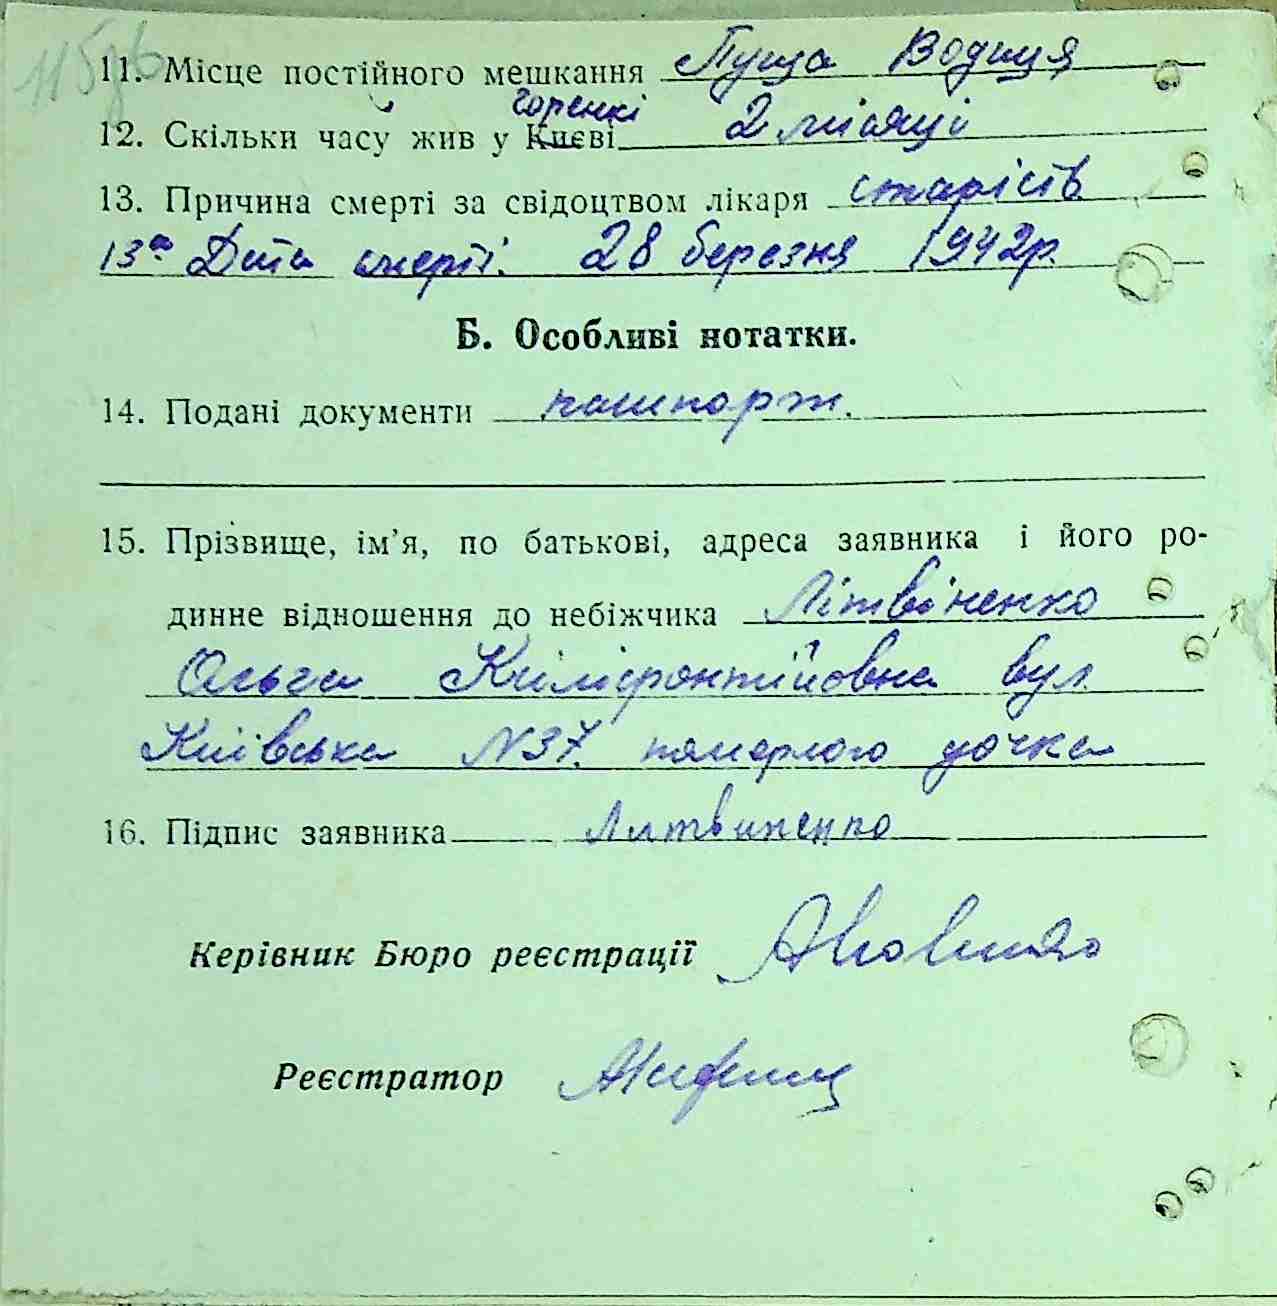 11. Місце постійного мешкання Пуща Водиця
горенкі
12. Скільки часу жив у Києві 2 місяці
13. Причина смерті за свідоцтвом лікаря старість
13а Дата смерті. 28 березня 1942р.
Б. Особливі нотатки.
14. Подані документи пашпорт.
15. Прізвище, ім'я, по батькові, адреса заявника і його ро-
динне відношення до небіжчика Літвіненко
Ольга вул.
Київська N37. померлого дочка
16. Підпис заявника Литвиненко
Керівник Бюро реєстрації
Реєстратор